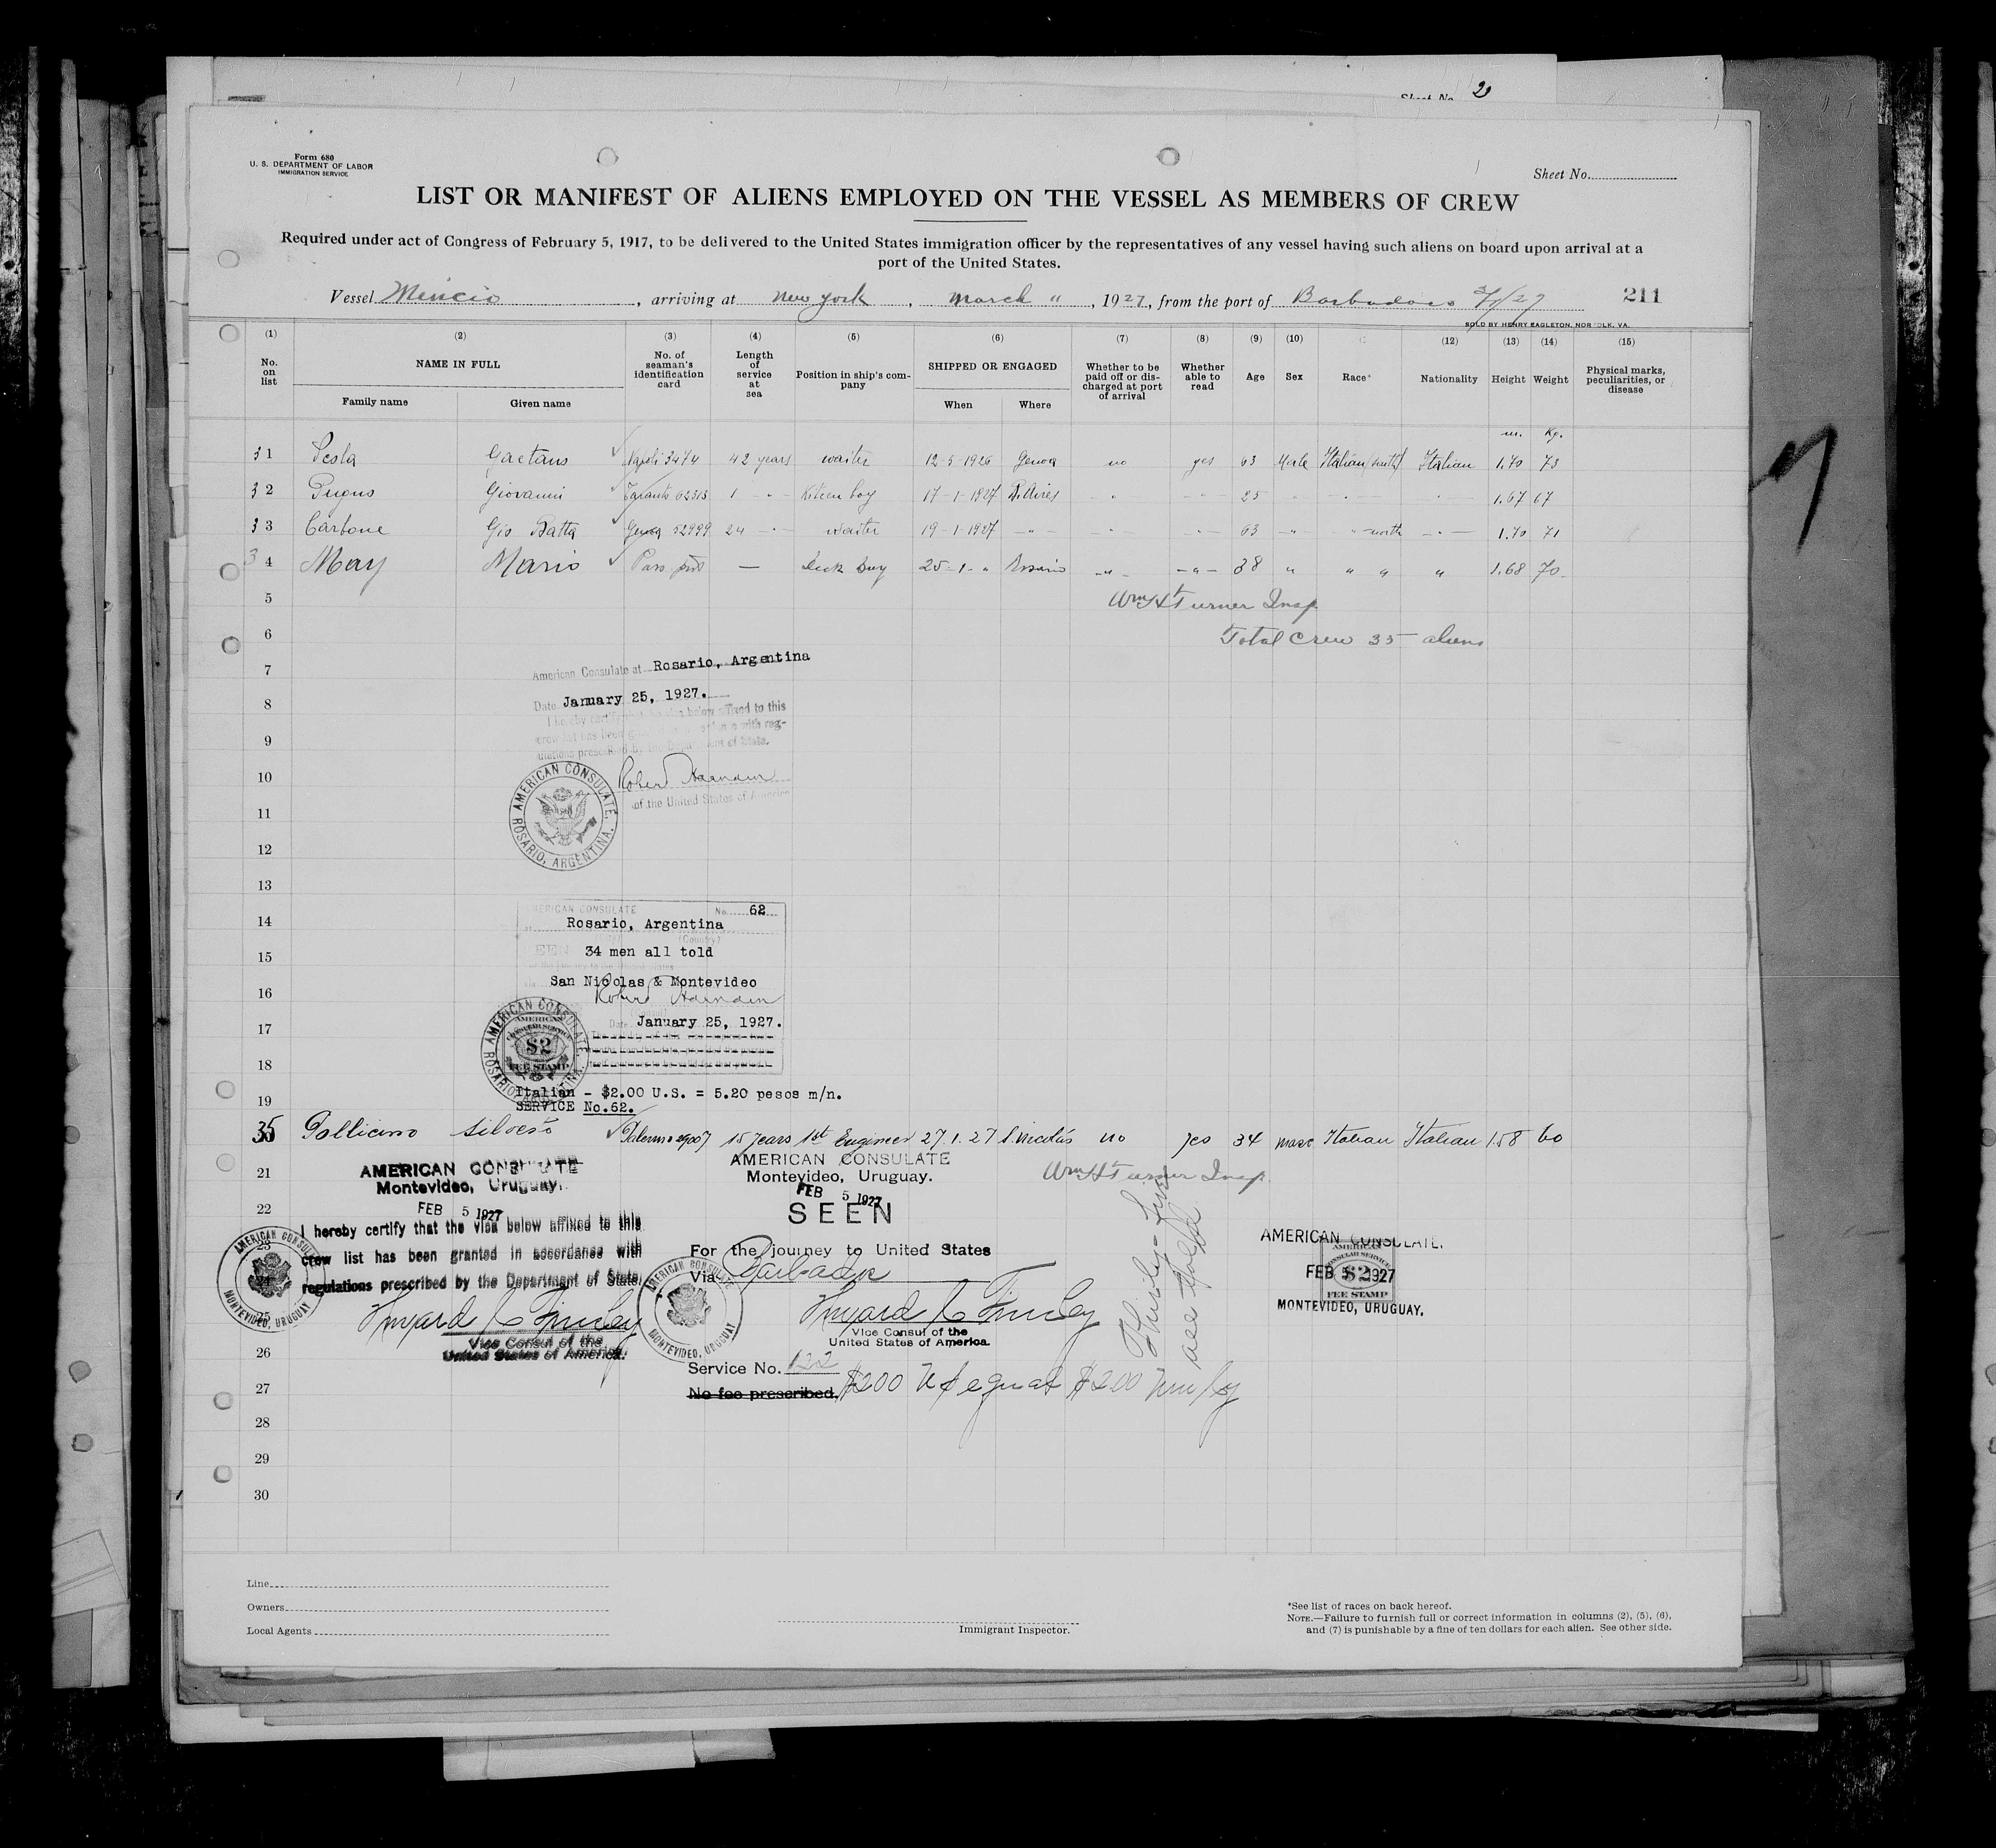 Sheet No. 2
Form 680
U. S. DEPARTMENT OF LABOR
IMMIGRATION SERVICE
Sheet No.
LIST OR MANIFEST OF ALIENS EMPLOYED ON THE VESSEL AS MEMBERS OF CREW
Required under act of Congress of February 5, 1917, to be delivered to the United States immigration officer by the representatives of any vessel having such aliens on board upon arrival at a
port of the United States.
Vessel Mincio, arriving at New York, March 11, 1927, from the port of Barbados 211
SOLD BY HENRY EAGLETON, NORFOLK, VA.
(1) (2) (3) (4) (5) (6) (7) (8) (9) (10) (12) (13) (14) (15)
No. on list NAME IN FULL Family name Given name No. of seaman's identification card Length of service at sea Position in ship's company SHIPPED OR ENGAGED When Where Whether to be paid off or discharged at port of arrival Whether able to read Age Sex Race* Nationality Height Weight Physical marks, peculiarities, or disease
m. Kg.
31 Gaetano Napoli 3474 42 years waiter 12-5-1926 Genoa no yes 63 Male Italian (south) Italian 1.70 73
32 Giovanni Taranto 62313 1 -"- Kitcen boy 17-1-1927 B. Aires -"- -"- 25 -"- -"- -"- 1.67 67
33 Carbone Gio Batta Genoa 52999 24 -"- waiter 19-1-1927 -"- -"- -"- 63 -"- "-north -"- 1.70 71
34 May Mario Pass port — Deck boy 25-1-" Rosario -"- -"- 38 " " " " 1.68 70
5 Wm H Turner Insp.
6 Total Crew 35 aliens
7 American Consulate at Rosario, Argentina
8 Date January 25, 1927.
I hereby certify that the visa below affixed to this
9 crew list has been granted in accordance with reg-
ulations prescribed by the Department of State.
10 Robert Harnden
11 of the United States of America
AMERICAN CONSULATE, ROSARIO, ARGENTINA.
12
13
AMERICAN CONSULATE No. 62
14 Rosario, Argentina
(Country)
15 SEEN 34 men all told
San Nicolas & Montevideo
16 Robert Harnden
17 Date January 25, 1927.
AMERICAN CONSULATE, ROSARIO, ARGENTINA.
AMERICAN CONSULAR SERVICE $2 FEE STAMP
18
19 Italian - $2.00 U.S. = 5.20 pesos m/n.
SERVICE No.62.
35 Pollicino Palermo 29007 15 years 1st Engineer 27.1.27 S. Nicolás no yes 34 male Italian Italian 1.58 60
21 AMERICAN CONSULATE AMERICAN CONSULATE Wm H Turner Insp.
Montevideo, Uruguay. Montevideo, Uruguay.
22 FEB 5 1927 FEB 5 1927
SEEN
I hereby certify that the visa below affixed to this
23 crew list has been granted in accordance with For the journey to United States
24 regulations prescribed by the Department of State. Via Barbados
25 Vice Consul of the United States of America. Vice Consul of the United States of America.
AMERICAN CONSULATE, MONTEVIDEO, URUGUAY
AMERICAN CONSULATE, MONTEVIDEO, URUGUAY
Thirty-five all told
AMERICAN CONSULATE,
AMERICAN CONSULAR SERVICE $2 FEE STAMP
FEB 5 1927
MONTEVIDEO, URUGUAY.
26 Service No. 122
27 No fee prescribed. $200 equal $200
28
29
30
Line
Owners
Local Agents
Immigrant Inspector.
*See list of races on back hereof.
NOTE.—Failure to furnish full or correct information in columns (2), (5), (6),
and (7) is punishable by a fine of ten dollars for each alien. See other side.